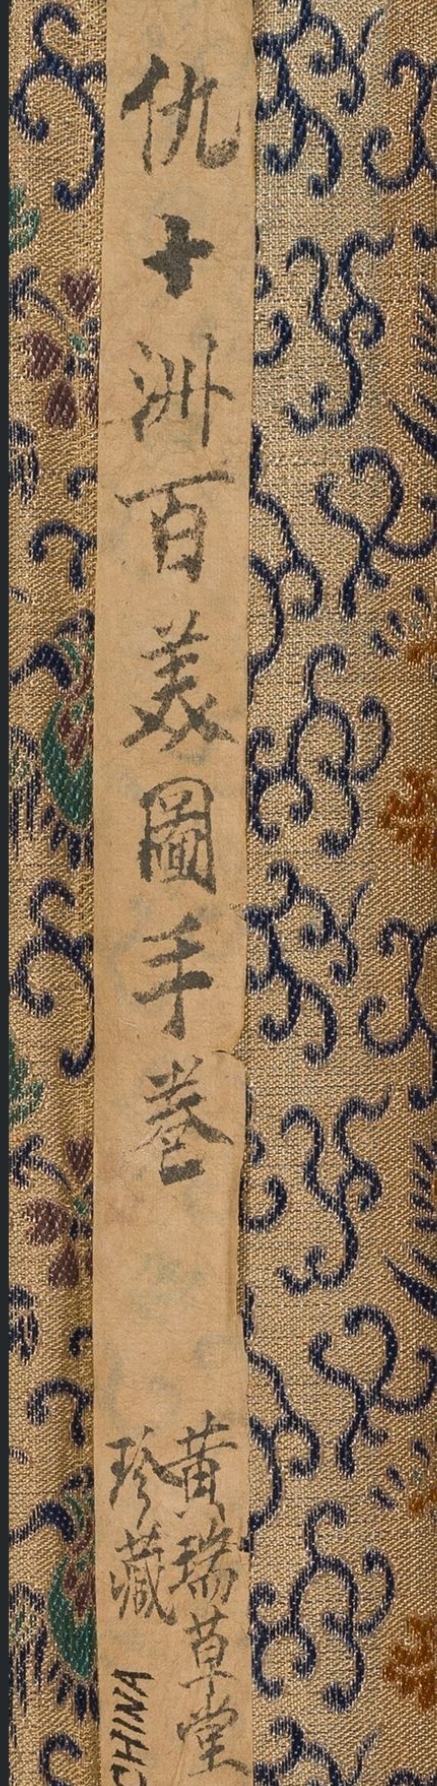 仇十洲百美圖手卷
黄瑞草堂
珍藏
CHINA